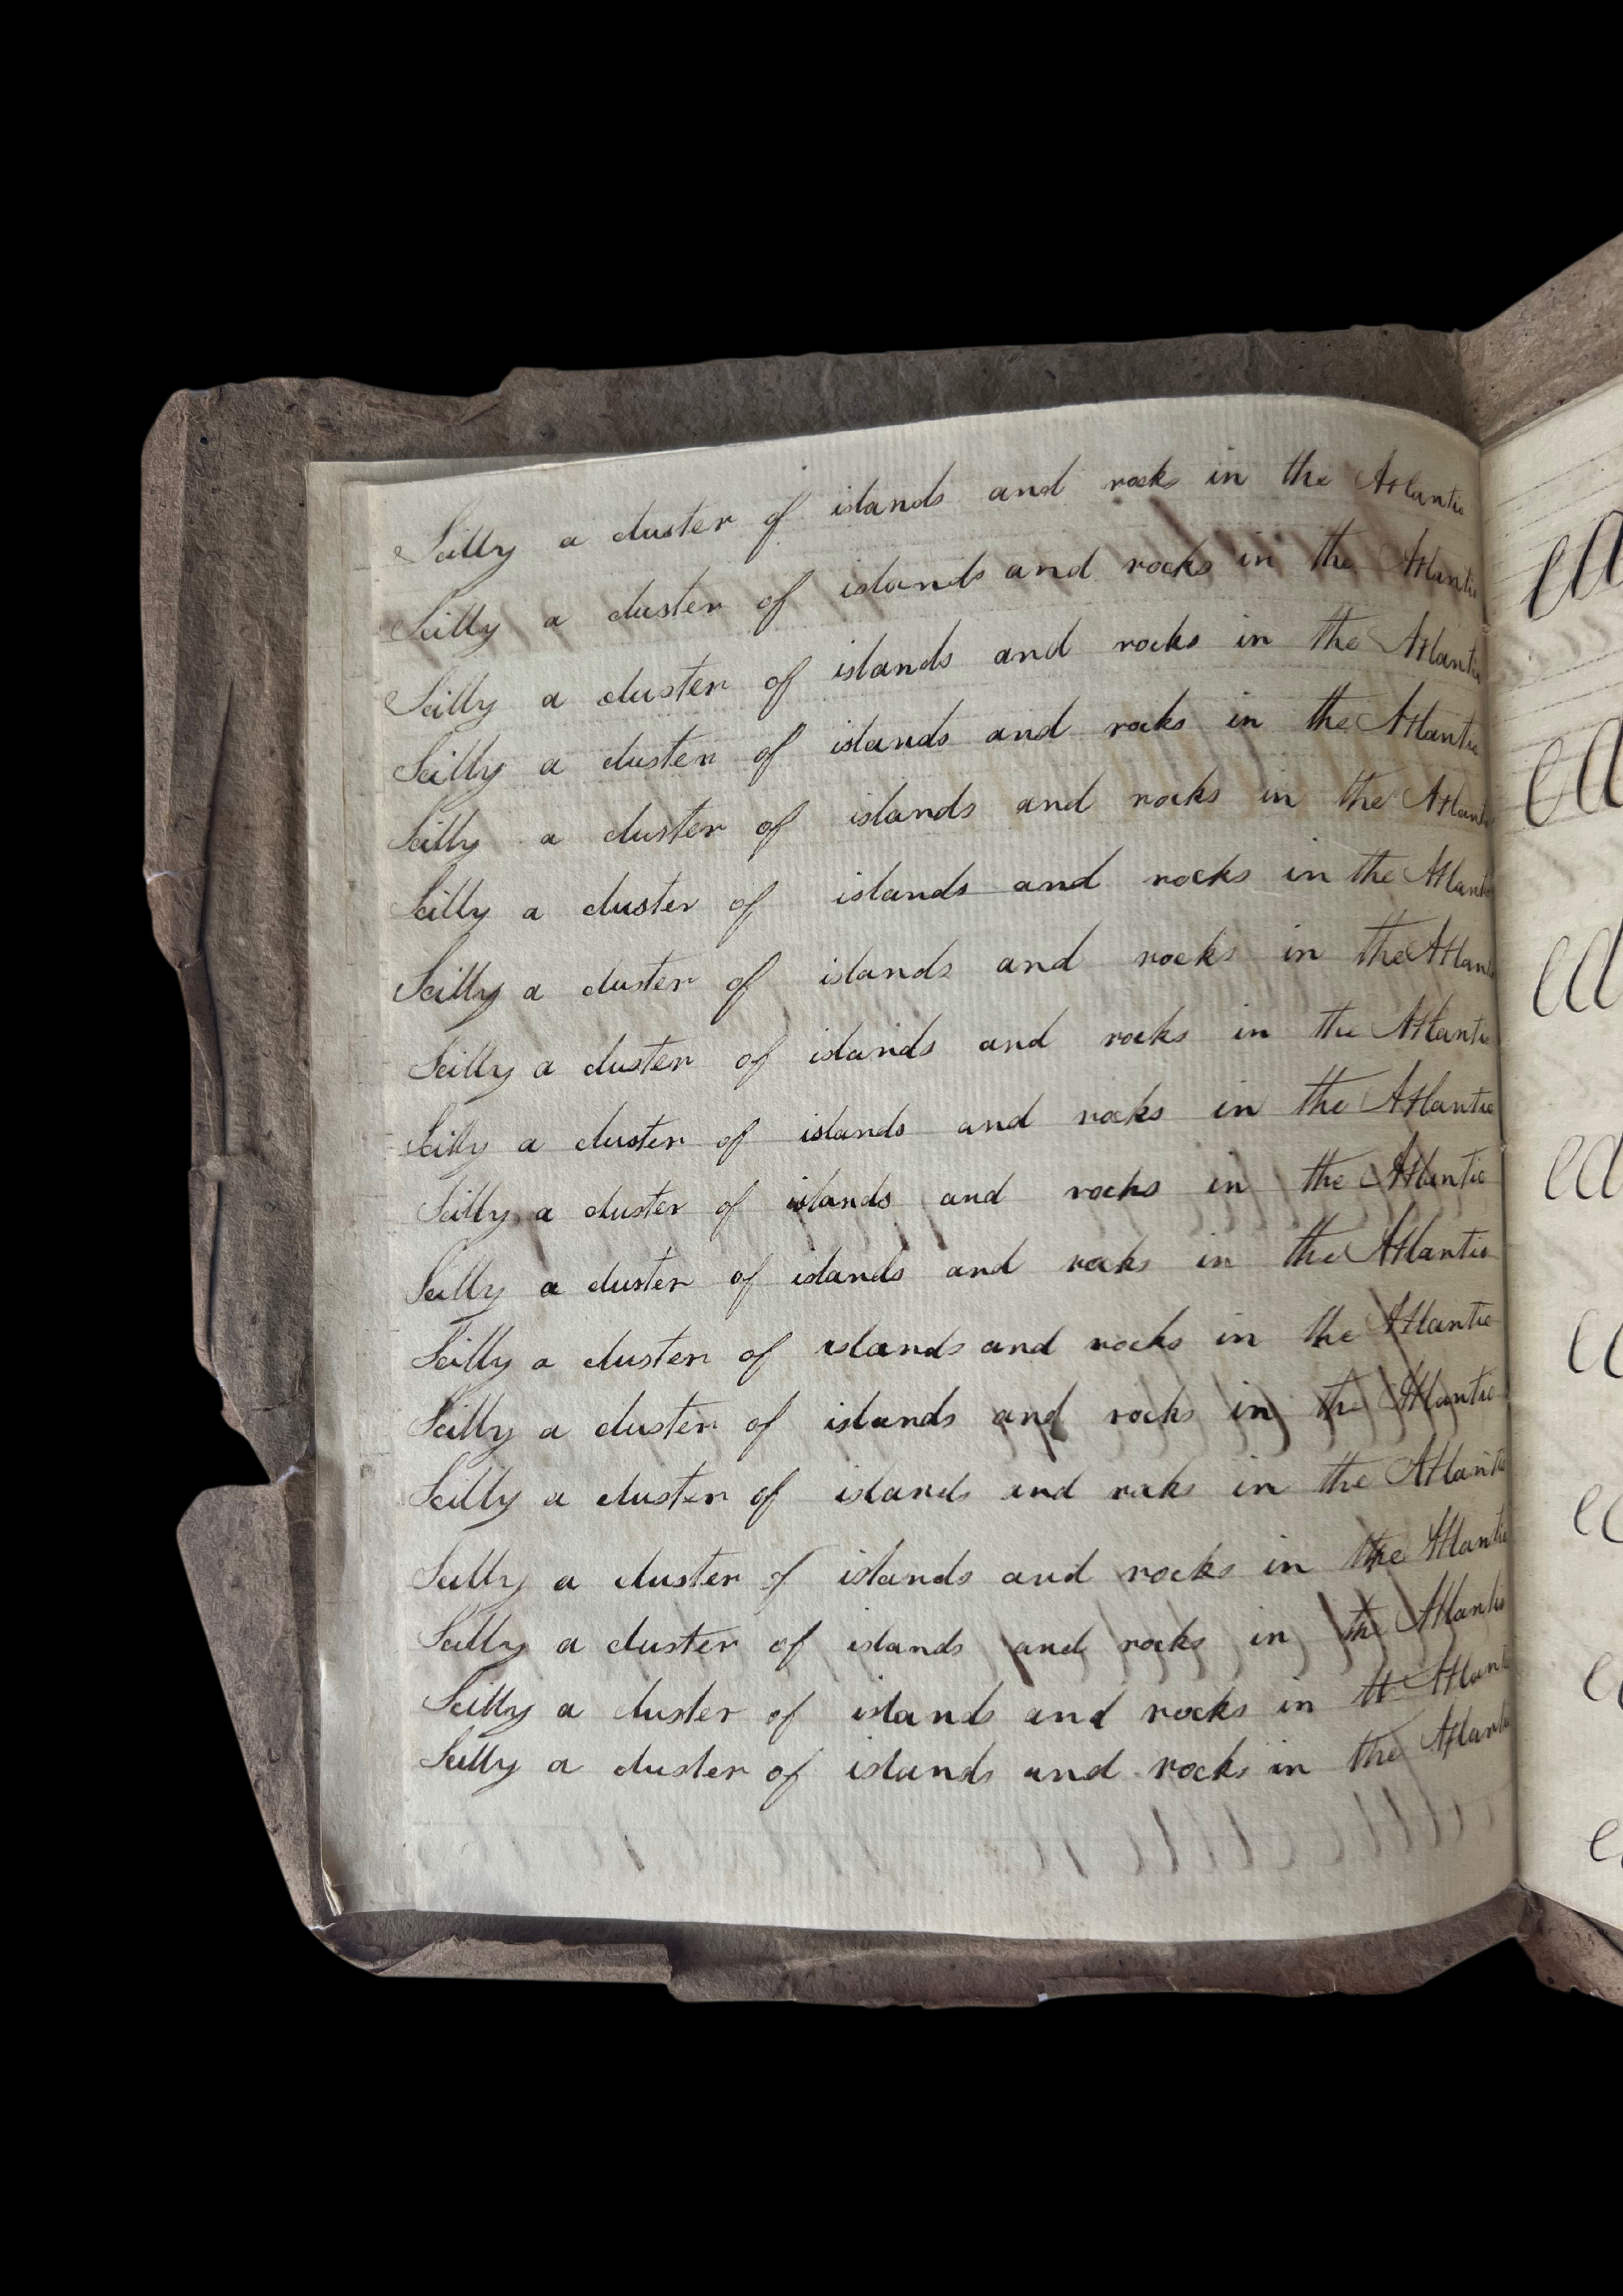 Scilly a cluster of islands and rocks in the Atlantic
Scilly a cluster of islands and rocks in the Atlantic
Scilly a cluster of islands and rocks in the Atlantic
Scilly a cluster of islands and rocks in the Atlantic
Scilly a cluster of islands and rocks in the Atlantic
Scilly a cluster of islands and rocks in the Atlantic
Scilly a cluster of islands and rocks in the Atlantic
Scilly a cluster of islands and rocks in the Atlantic
Scilly a cluster of islands and rocks in the Atlantic
Scilly a cluster of islands and rocks in the Atlantic
Scilly a cluster of islands and rocks in the Atlantic
Scilly a cluster of islands and rocks in the Atlantic
Scilly a cluster of islands and rocks in the Atlantic
Scilly a cluster of islands and rocks in the Atlantic
Scilly a cluster of islands and rocks in the Atlantic
Scilly a cluster of islands and rocks in the Atlantic
Scilly a cluster of islands and rocks in tt Atlant
Scilly a cluster of islands and rocks in the Atlantic